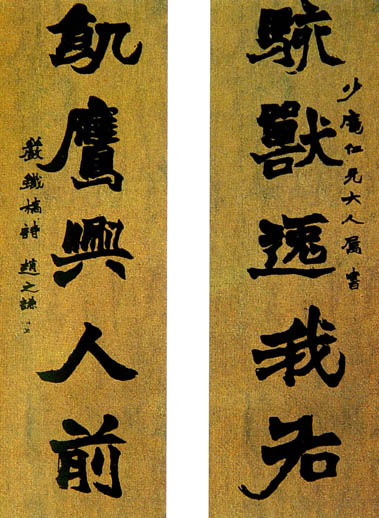 少庵仁兄大人屬書
駭獸逸我右
飢鷹興人前
嚴鐵橋詩 趙之謙